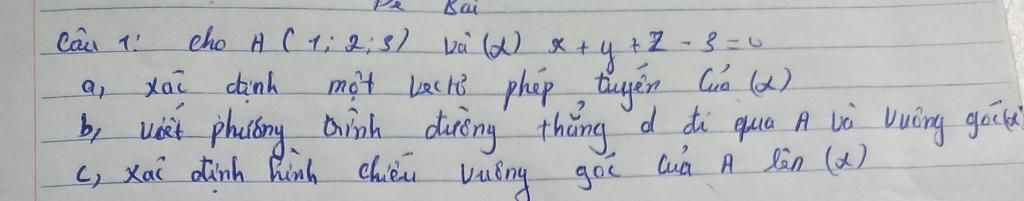 Đề Bài
Câu 1: cho A (1; 2; 3) và (α) x + y + z - 3 = 0
a, xác định một vectơ phép tuyến của (α)
b, viết phương trình đường thẳng d đi qua A và vuông góc (α)
c, xác định hình chiếu vuông góc của A lên (α)